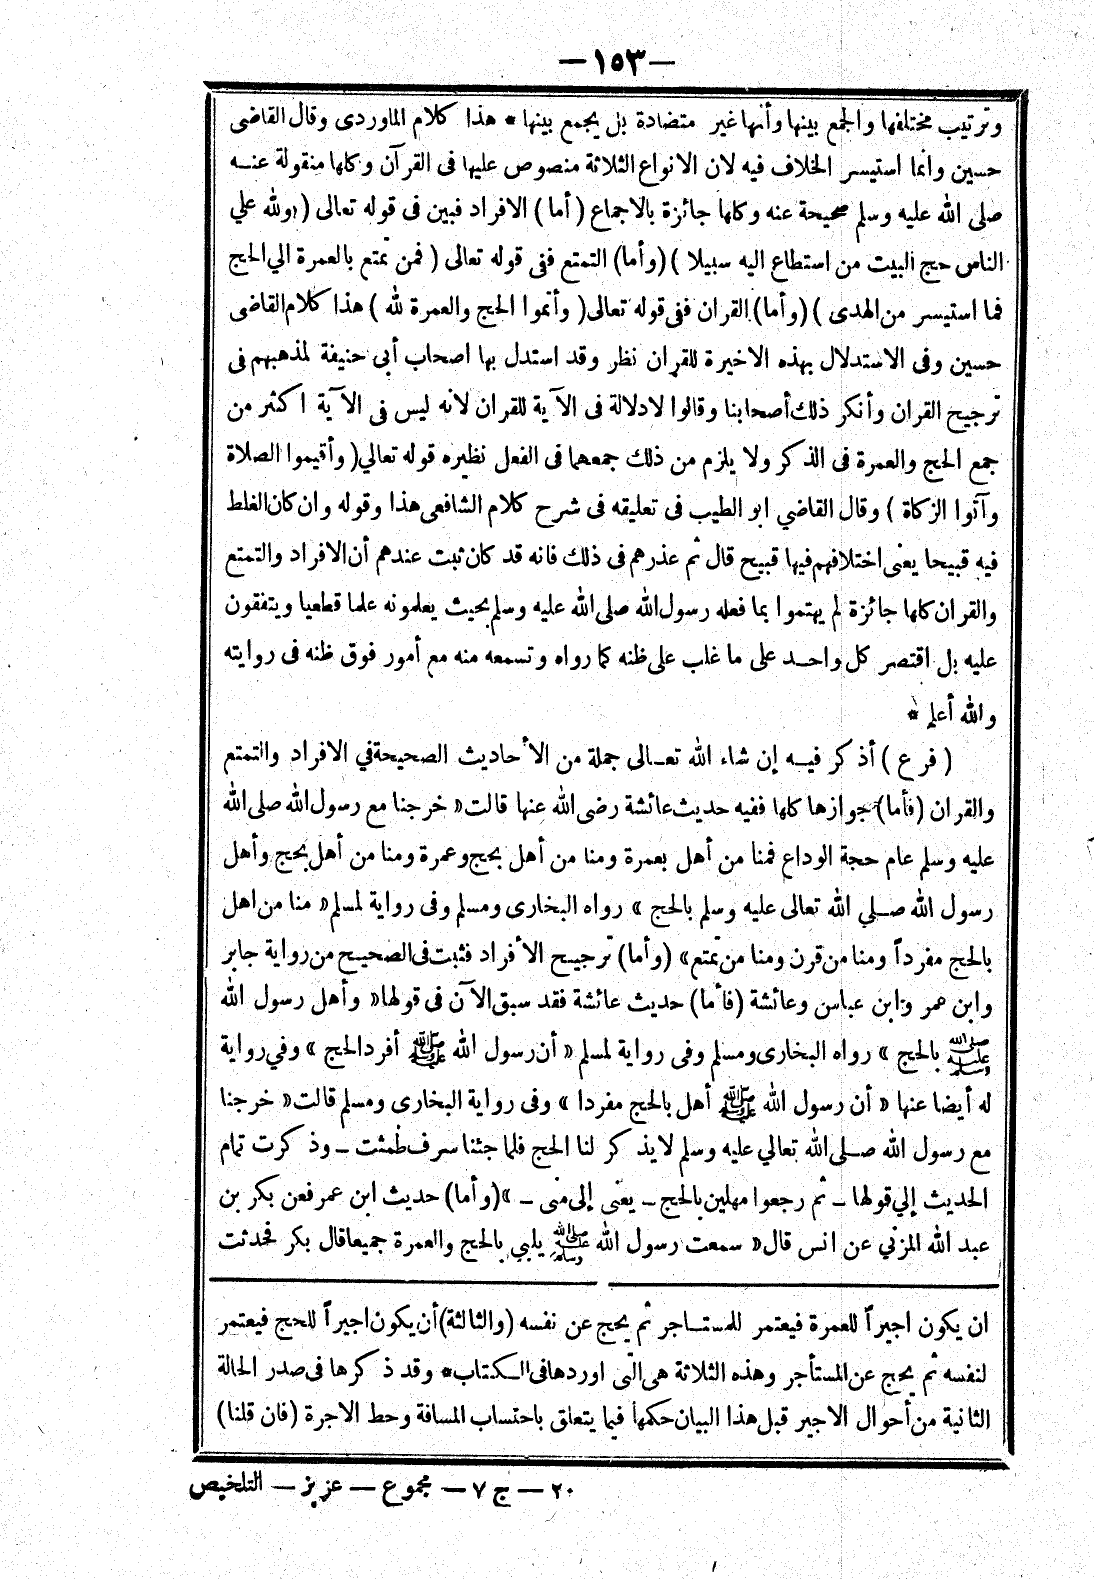 —١٥٣—
وترتيب مختلفها والجمع بينها وأنها غير متضادة بل يجمع بينها * هذا كلام الماوردى وقال القاضى
حسين وانما استيسر الخلاف فيه لان الانواع الثلاثة منصوص عليها فى القرآن وكلها منقولة عنه
صلى الله عليه وسلم صحيحة عنه وكلها جائزة بالاجماع ( أما ) الافراد فبين فى قوله تعالى ( ولله علي
الناس حج البيت من استطاع اليه سبيلا ) ( وأما) التمتع ففى قوله تعالى ( فمن تمتع بالعمرة الي الحج
فما استيسر من الهدى ) ( وأما) القران ففى قوله تعالى( وأتموا الحج والعمرة لله ) هذا كلام القاضى
حسين وفى الاستدلال بهذه الاخيرة للقران نظر وقد استدل بها اصحاب أبى حنيفة لمذهبهم فى
ترجيح القران وأنكر ذلك أصحابنا وقالوا لادلالة فى الآية للقران لانه ليس فى الآية اكثر من
جمع الحج والعمرة فى الذكر ولا يلزم من ذلك جمعهما فى الفعل نظيره قوله تعالي( وأقيموا الصلاة
وآتوا الزكاة ) وقال القاضي ابو الطيب فى تعليقه فى شرح كلام الشافعى هذا وقوله وان كان الغلط
فيه قبيحا يعنى اختلافهم فيها قبيح قال ثم عذرهم فى ذلك فانه قد كان ثبت عندهم أن الافراد والتمتع
والقران كلها جائزة لم يهتموا بما فعله رسول الله صلى الله عليه وسلم بحيث يعلمونه علما قطعيا ويتفقون
عليه بل اقتصر كل واحد على ما غلب على ظنه كما رواه وتسمعه منه مع أمور فوق ظنه فى روايته
والله أعلم *
( فرع ) أذكر فيه إن شاء الله تعالى جملة من الأحاديث الصحيحة في الافراد والتمتع
والقران (فأما) جوازها كلها ففيه حديث عائشة رضى الله عنها قالت « خرجنا مع رسول الله صلى الله
عليه وسلم عام حجة الوداع فمنا من أهل بعمرة ومنا من أهل بحج وعمرة ومنا من أهل بحج وأهل
رسول الله صلي الله تعالى عليه وسلم بالحج » رواه البخارى ومسلم وفى رواية لمسلم « منا من اهل
بالحج مفرداً ومنا من قرن ومنا من تمتع» (وأما) ترجيح الأفراد فثبت فى الصحيح من رواية جابر
وابن عمر وابن عباس وعائشة (فأما) حديث عائشة فقد سبق الآن فى قولها« وأهل رسول الله
ﷺ بالحج » رواه البخارى ومسلم وفى رواية لمسلم « أن رسول الله ﷺ أفرد الحج » وفي رواية
له أيضا عنها « أن رسول الله ﷺ أهل بالحج مفردا » وفى رواية البخارى ومسلم قالت« خرجنا
مع رسول الله صلى الله تعالي عليه وسلم لا يذكر لنا الحج فلما جئنا سرف طمثت ــ وذكرت تمام
الحديث إلي قولها ــ ثم رجعوا مهلين بالحج ــ يعنى إلى منى ــ »(وأما) حديث ابن عمر فعن بكر بن
عبد الله المزني عن انس قال« سمعت رسول الله ﷺ يلبي بالحج والعمرة جميعا قال بكر فحدثت
ان يكون اجيراً للعمرة فيعتمر للمستاجر ثم يحج عن نفسه (والثالثة)أن يكون اجيراً للحج فيعتمر
لنفسه ثم يحج عن المستأجر وهذه الثلاثة هى التى اوردها فى الكتاب* وقد ذكرها فى صدر الحالة
الثانية من أحوال الاجير قبل هذا البيان حكمها فيما يتعلق باحتساب المسافة وحط الاجرة (فان قلنا)
٢٠ — ج ٧ — مجموع — عزيز — التلخيص